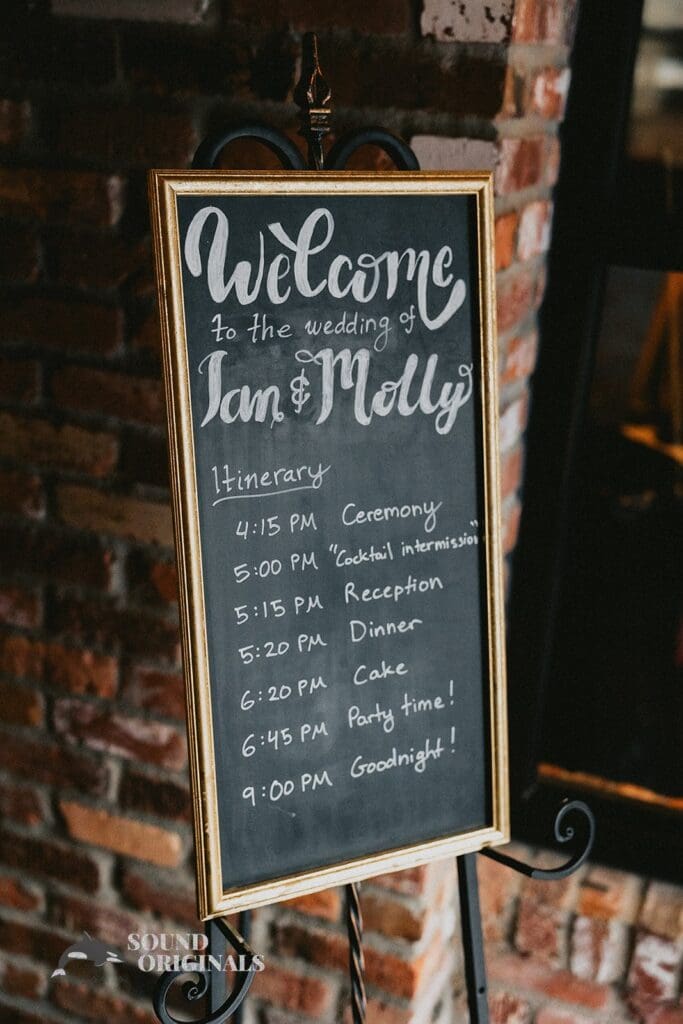 Welcome
to the wedding of
Ian & Molly
Itinerary
4:15 PM Ceremony
5:00 PM "Cocktail intermission"
5:15 PM Reception
5:20 PM Dinner
6:20 PM Cake
6:45 PM Party time!
9:00 PM Goodnight!
SOUND
ORIGINALS